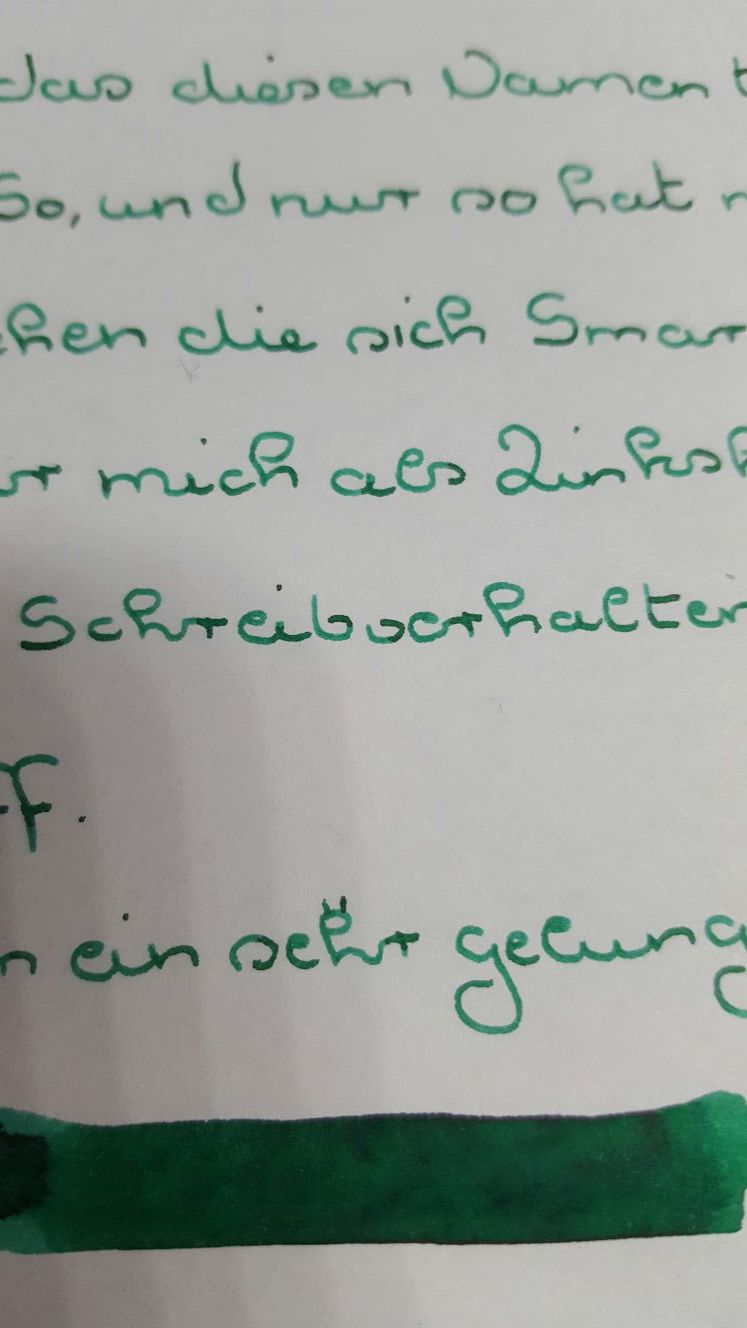 das diesen Namen t
So, und nur so hat n
hen die sich Smar
ur mich als Linksh
Schreibverhalten
ff.
n ein sehr gelung